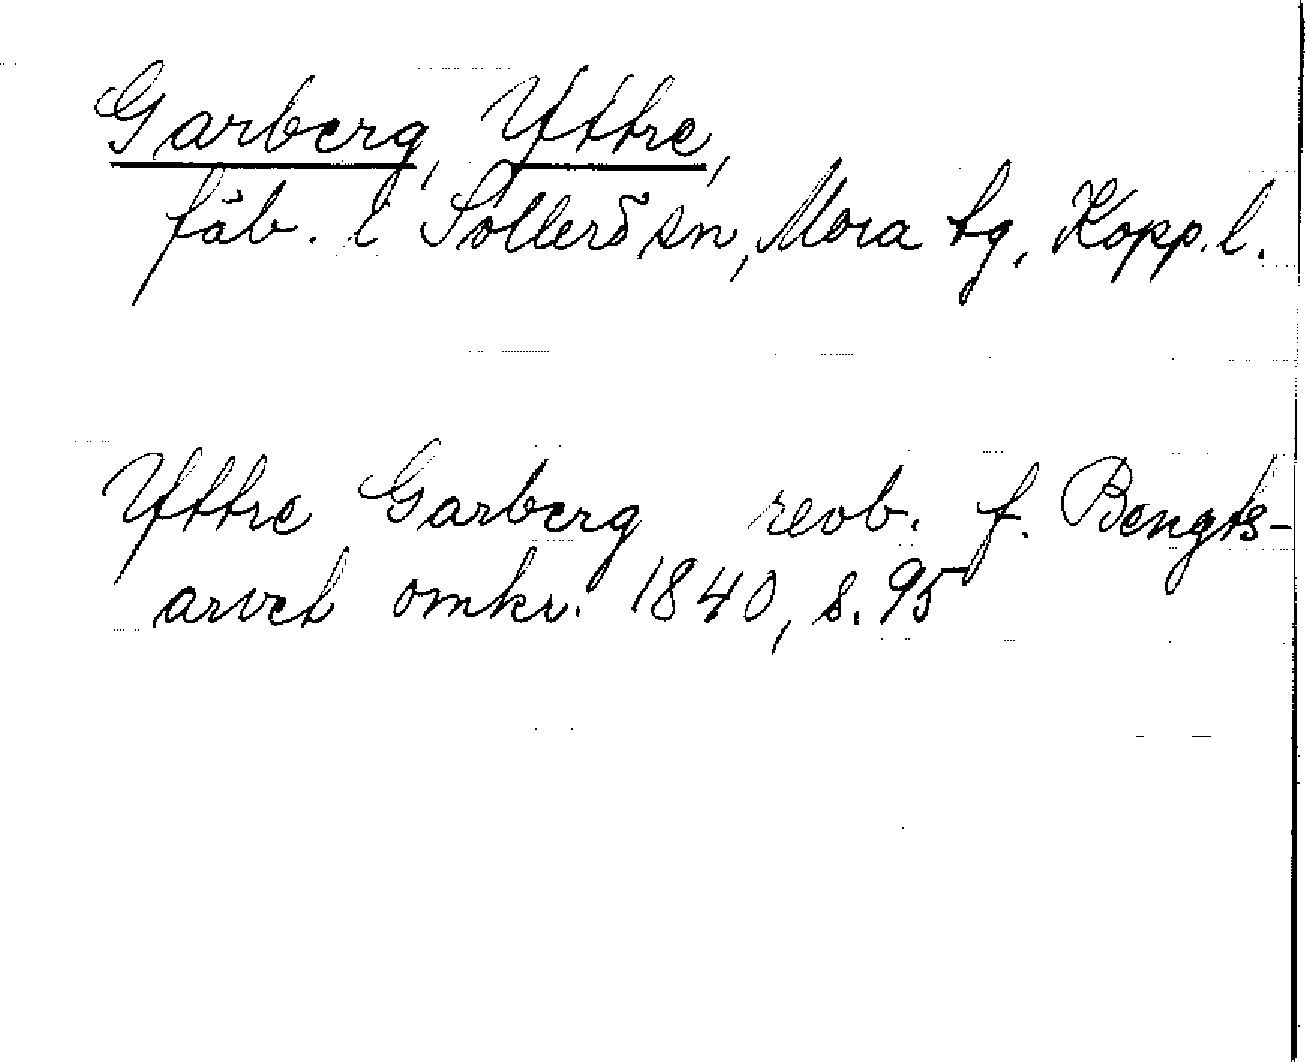 Garberg, Yttre,
fäb. i Sollerö sn, Mora tg, Kopp. l.
Yttre Garberg revb. f. Bengts-
arvet omkr. 1840, s. 95